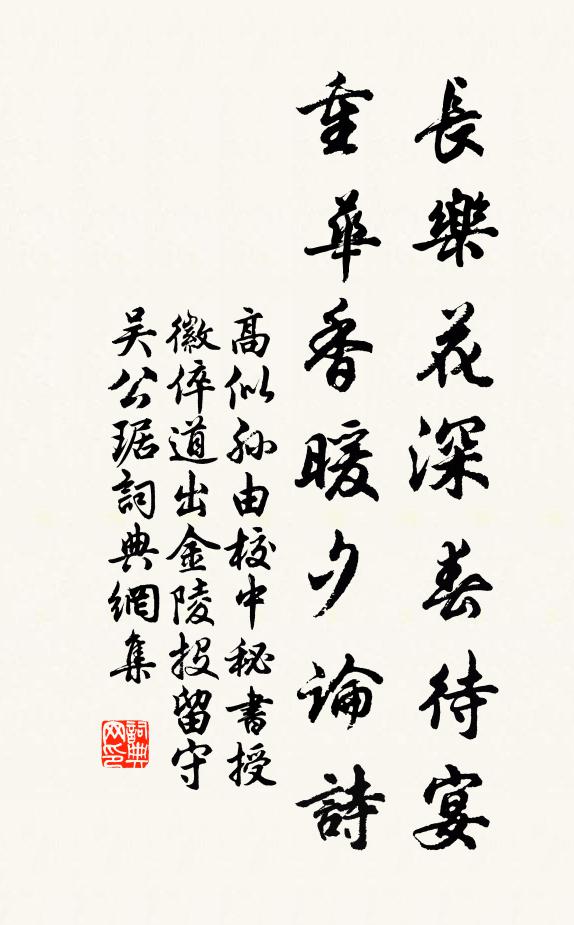 長樂花深春待宴
重華香暖夕論詩
高似孫由校中秘書授
徽倅道出金陵投留守
吴公琚詞典網集
詞典网印